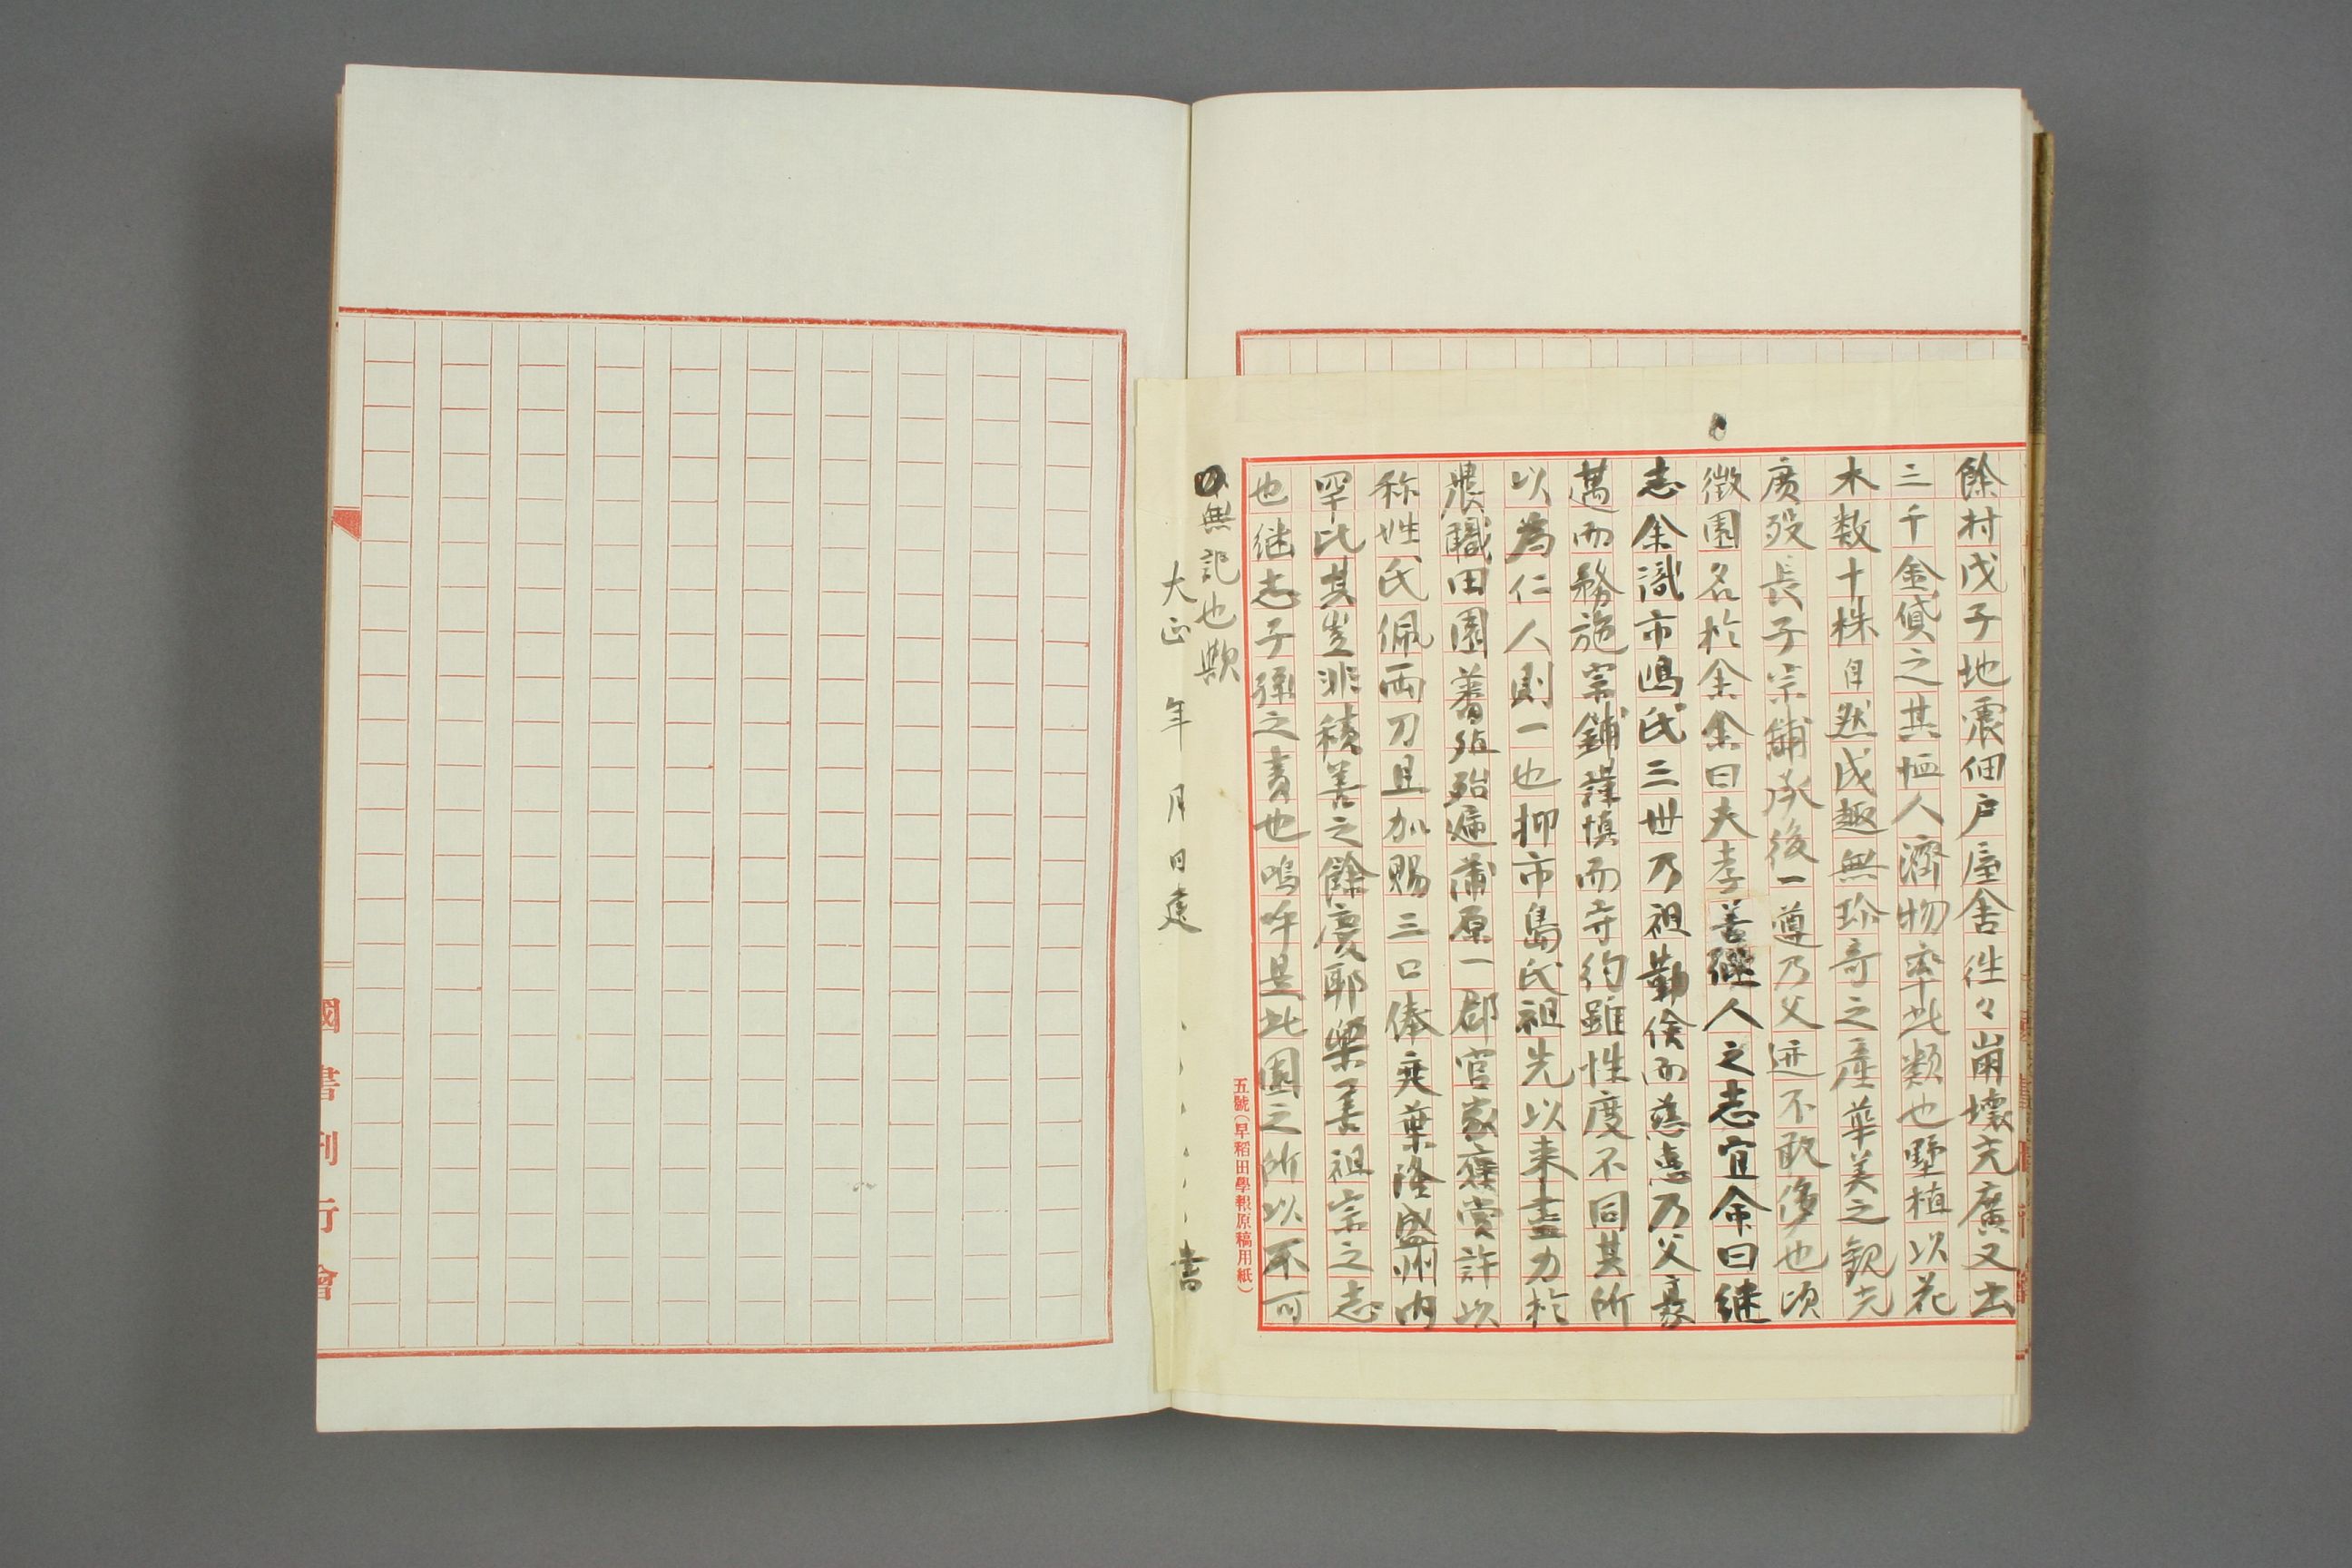 餘村戊子地震佃戸屋舍徃々崩壞充廣又出
三千金貸之其恤人濟物率此類也墅植以花
木数十株自然成趣無珍奇之產華美之観充
廣歿長子宗鋪承後一遵乃父迹不敢侈也頃
徵園名於余余曰夫孝善繼人之志宜命曰継
志余識市嶋氏三世乃祖勤儉而慈惠乃父豪
邁而務施宗鋪謹慎而守約雖性度不同其所
以為仁人則一也抑市島氏祖先以来盡力於
農職田園蕃殖殆遍蒲原一郡官家褒賞許以
称姓氏佩両刀且加賜三口俸奕葉隆盛州内
罕比其豈非積善之餘慶耶樂善祖宗之志
也継志子孫之責也嗚呼是此園之所以不可
無記也歟
大正 年 月 日建 書
五號(早稻田學報原稿用紙)
國書刊行會